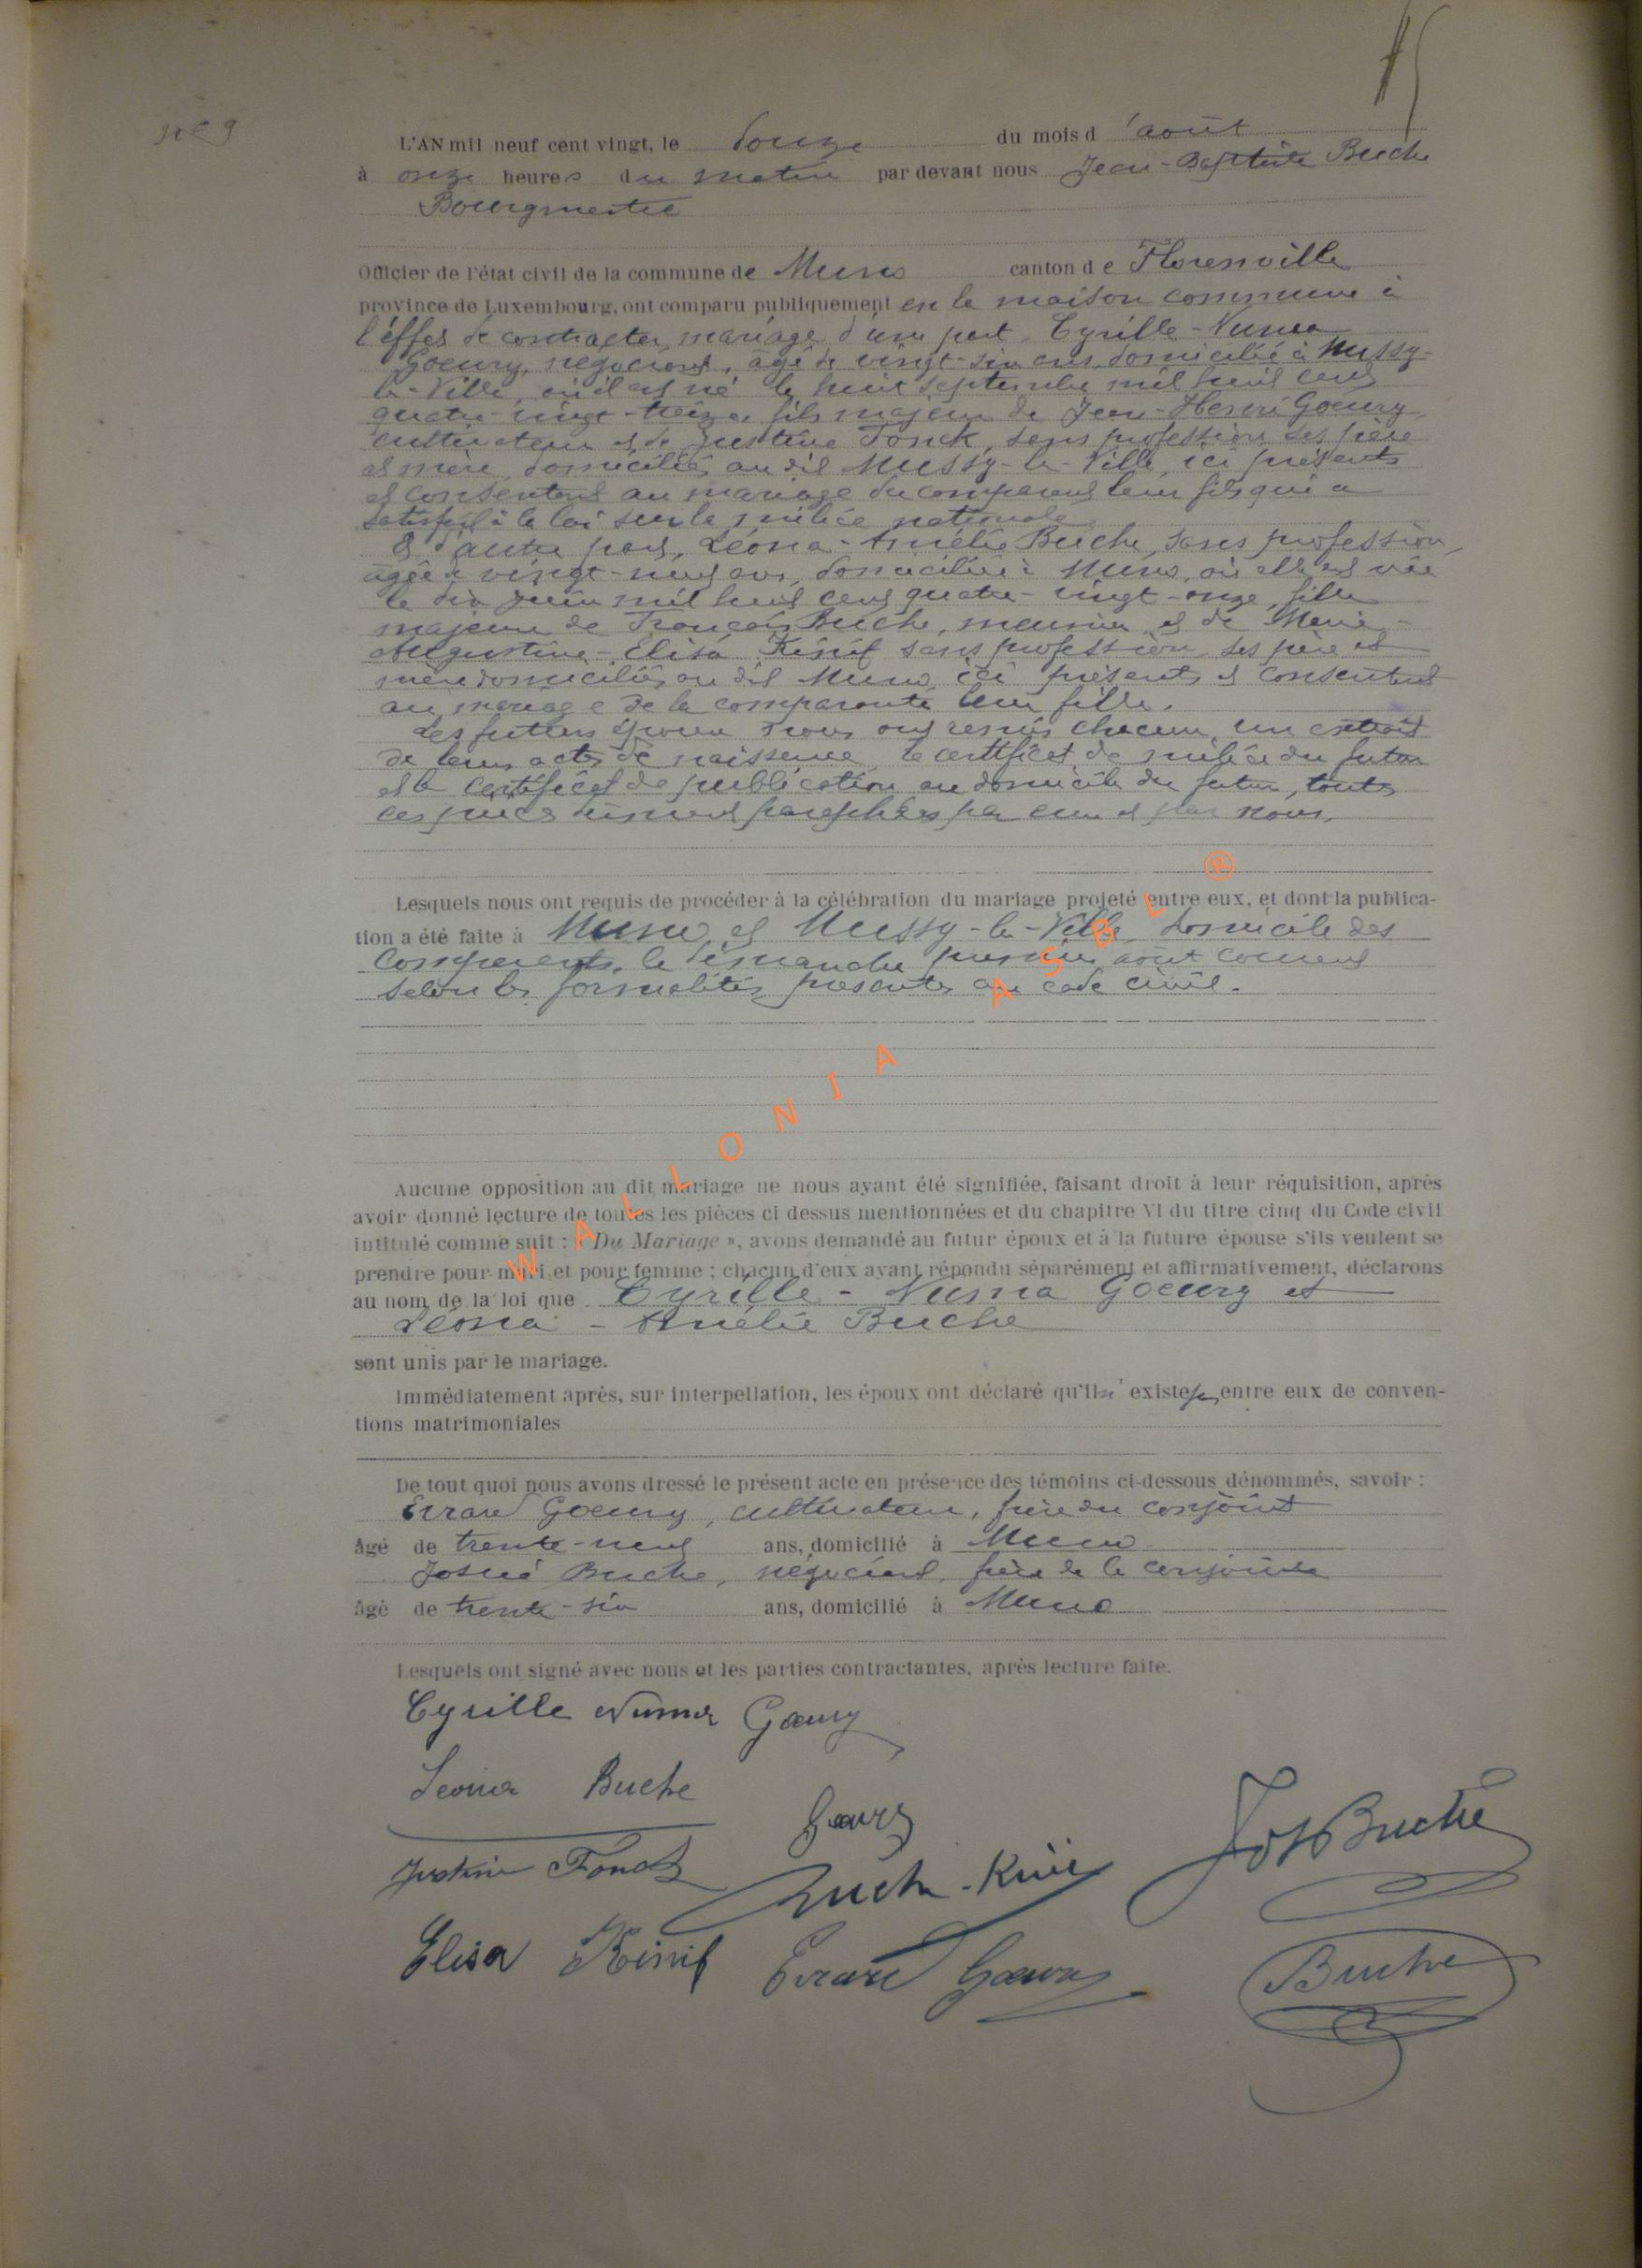 N° 9
L'AN mil neuf cent vingt, le douze du mois d'août
à onze heures du matin par devant nous Jean-Baptiste Buche
Bourgmestre
Officier de l'état civil de la commune de Muno canton de Florenville
province de Luxembourg, ont comparu publiquement en la maison commune à
l'effet de contracter mariage d'une part, Cyrille-Numa
Goeury, négociant, âgé de vingt-six ans, domicilié à Mussy-
la-Ville, où il est né le huit septembre mil huit cent
quatre-vingt-treize, fils majeur de Jean-Henri Goeury,
cultivateur et de Justine Fonck, sans profession, ses père
et mère, domiciliés au dit Mussy-la-Ville, ici présents
et consentant au mariage du comparant leur fils qui a
satisfait à la loi sur la milice nationale
Et d'autre part, Léona-Amélie Buche, sans profession,
âgée de vingt-neuf ans, domiciliée à Muno, où elle est née
le dix juin mil huit cent quatre-vingt-onze, fille
majeure de François Buche, meunier et de Marie-
Augustine-Elisa Kinif sans profession, ses père et
mère domiciliés au dit Muno, ici présents et consentant
au mariage de la comparante leur fille.
Les futurs époux nous ont remis chacun un extrait
de leurs actes de naissance, le certificat de milice du futur
et le certificat de publication au domicile du futur, toutes
ces pièces dûment paraphées par eux et par nous.
Lesquels nous ont requis de procéder à la célébration du mariage projeté entre eux, et dont la publica-
tion a été faite à Muno et Mussy-la-Ville, domicile des
comparents, le dimanche premier août courant
selon les formalités prescrites au code civil.
Aucune opposition au dit mariage ne nous ayant été signifiée, faisant droit à leur réquisition, après
avoir donné lecture de toutes les pièces ci dessus mentionnées et du chapitre VI du titre cinq du Code civil
intitulé comme suit : « Du Mariage », avons demandé au futur époux et à la future épouse s'ils veulent se
prendre pour mari et pour femme ; chacun d'eux ayant répondu séparément et affirmativement, déclarons
au nom de la loi que Cyrille-Numa Goeury et
Léona-Amélie Buche
sont unis par le mariage.
Immédiatement après, sur interpellation, les époux ont déclaré qu'il n'existe pas entre eux de conven-
tions matrimoniales
De tout quoi nous avons dressé le présent acte en présence des témoins ci-dessous dénommés, savoir :
Evrard Goeury, cultivateur, frère du conjoint
âgé de trente-neuf ans, domicilié à Muno
Josué Buche, négociant, frère de la conjointe
âgé de trente-six ans, domicilié à Muno
Lesquels ont signé avec nous et les parties contractantes, après lecture faite.
Cyrille Numa Goeury
Leona Buche
Goeury
Justine Fonck
Buche-Kinif
Jos Buche
Elisa Kinif
Evrard Goeury
Buche
WALLONIA ASBL ®